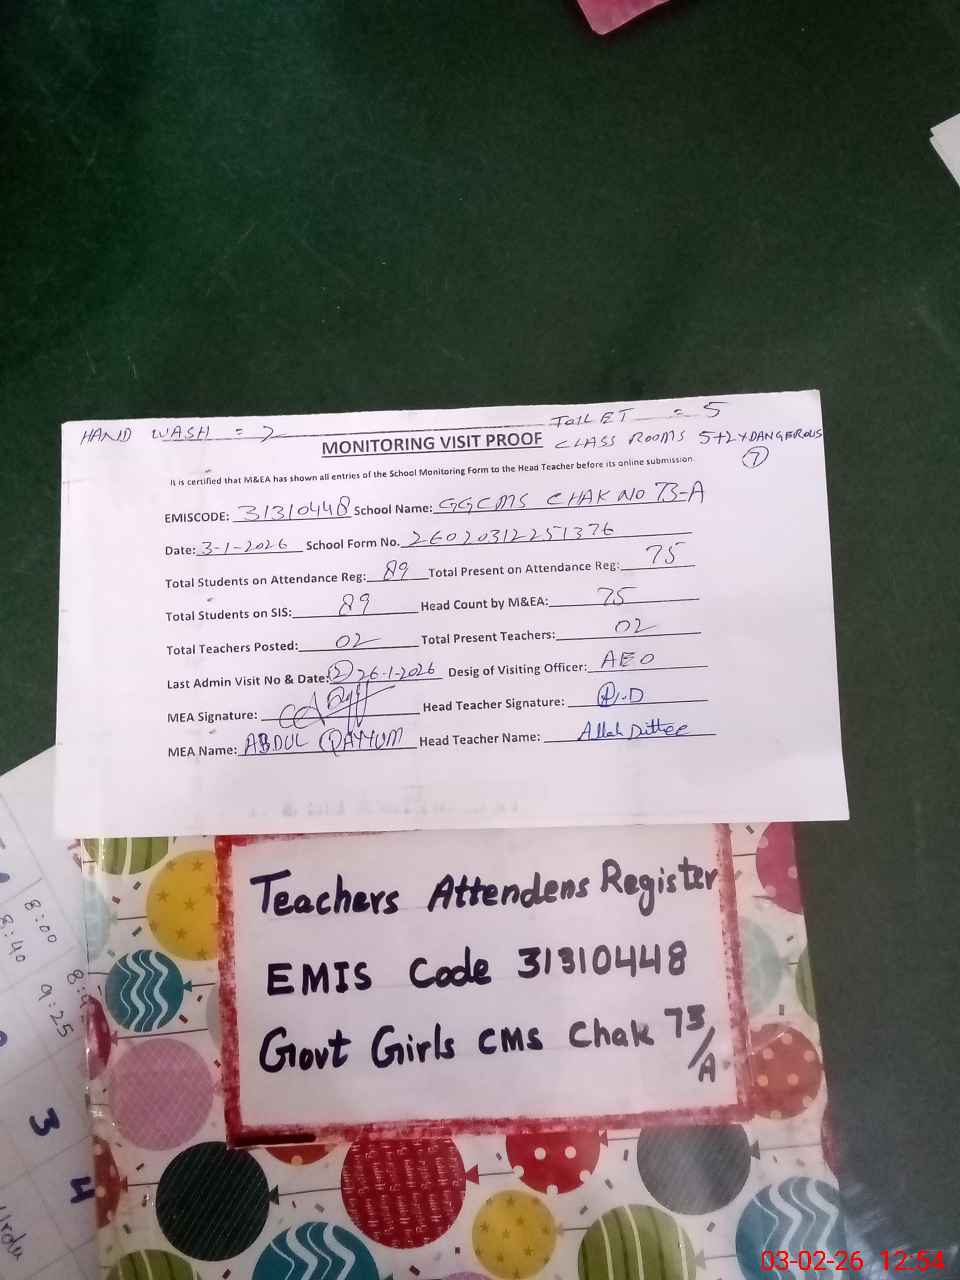 HAND WASH = 2
TOILET = 5
MONITORING VISIT PROOF
CLASS ROOMS 5+2 DANGEROUS
7
It is certified that M&EA has shown all entries of the School Monitoring Form to the Head Teacher before its online submission.
EMISCODE: 31310448 School Name: GGCMS CHAK NO 73-A
Date: 3-1-2026 School Form No. 26020312251376
Total Students on Attendance Reg: 89 Total Present on Attendance Reg: 75
Total Students on SIS: 89 Head Count by M&EA: 75
Total Teachers Posted: 02 Total Present Teachers: 02
Last Admin Visit No & Date: (2) 26-1-2026 Desig of Visiting Officer: AEO
MEA Signature: Head Teacher Signature: A.D
MEA Name: ABDUL QAYYUM Head Teacher Name: Allah Dittee
Teachers Attendens Register
EMIS Code 31310448
Govt Girls CMS Chak 73/A
8:00
8:40
9:25
3
4
Urdu
03-02-26 12:54